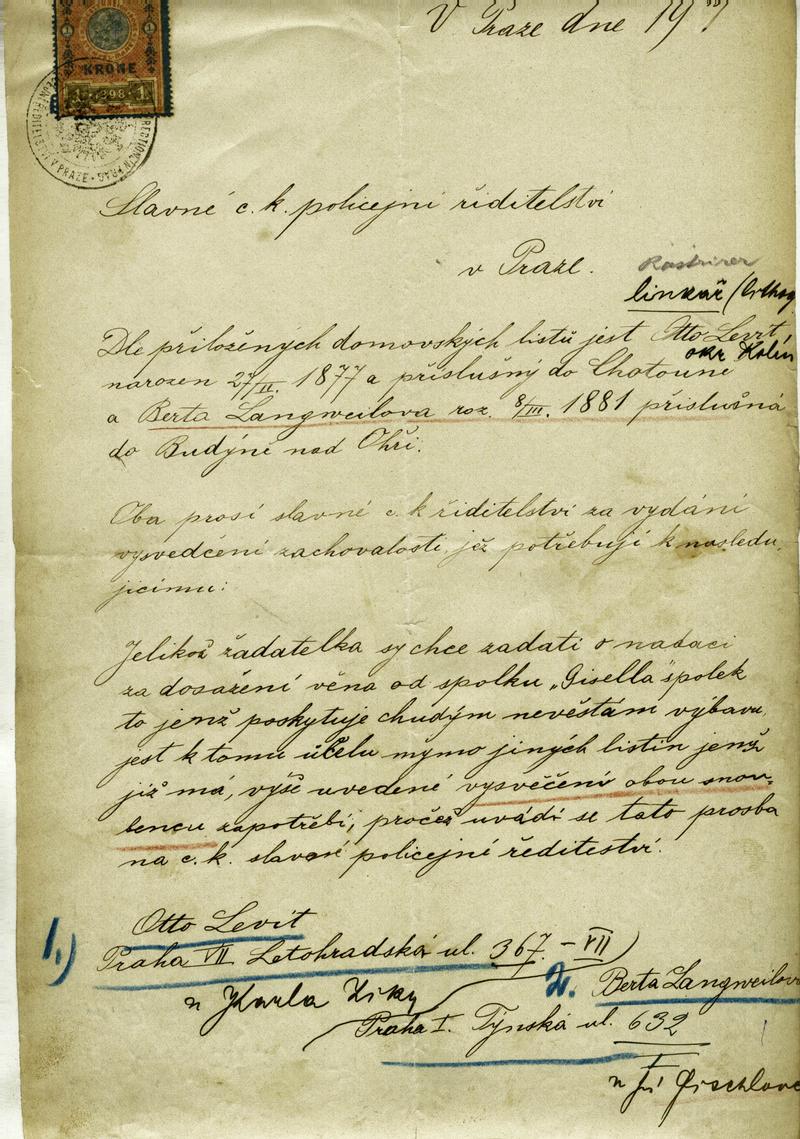 V Praze dne 19
KRONE
1 1898 1
V PRAZE · PRAG
Slavné c. k. policejní řiditelství
v Praze.
Rastrirer
linkář
Dle přiložených domovských listů jest Otto Levit,
okr Kolín
narozen 27/II. 1877 a příslušný do Chotouně
a Berta Langweilova roz. 8/III. 1881 příslušná
do Budýně nad Ohří.
Oba prosí slavné c. k řiditelství za vydání
vysvedčení zachovalosti, jež potřebují k nasledu,
jicímu:
Jelikož žadatelka sy chce zadati o nadaci
za dosažení věna od spolku „Gisella" spolek
to jenž poskytuje chudým nevěstám výbavu,
jest k tomu účelu mymo jiných listin jenž
již má, výše uvedené vysvěčení obou snou-
bencu zapotřebí; pročež uvádí se tato prosba
na c. k. slavné policejní řediteství.
1.) Otto Levit
Praha VII Letohradská ul. 367. – VII
2. Berta Langweilov
u Karla
Praha I. Týnská ul. 632
I
u